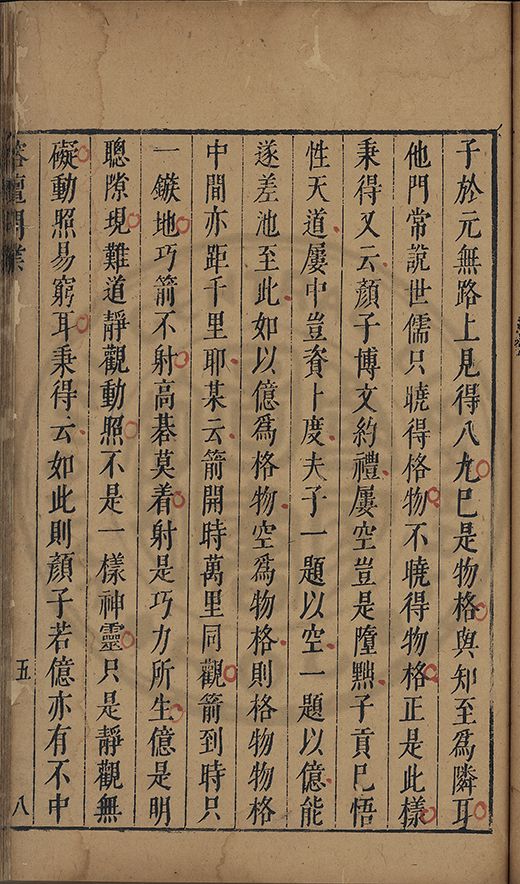 子於元無路上見得八九巳是物格與知至爲隣耳
他門常說世儒只曉得格物不曉得物格正是此樣
秉得又云顏子博文約禮屢空豈是墮黜子貢巳悟
性天道屢中豈資卜度夫子一題以空一題以億能
遂差池至此如以億爲格物空爲物格則格物物格
中間亦距千里耶某云箭開時萬里同觀箭到時只
一鏃地巧箭不射高碁莫着射是巧力所生億是明
聰隙現難道靜觀動照不是一樣神靈只是靜觀無
礙動照易窮耳秉得云如此則顏子若億亦有不中
榕壇問業
五
八